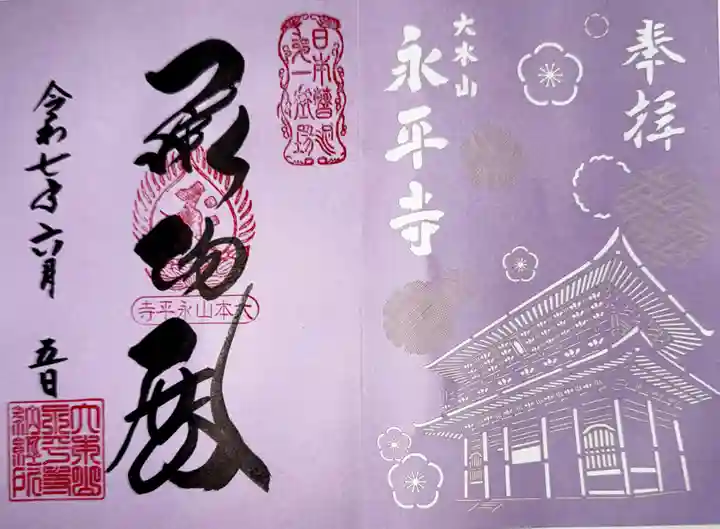 奉拝
大本山
永平寺
日本曹洞
第一道場
承陽殿
大本山永平寺
令和七年六月 五日
大本山
永平寺
納経所